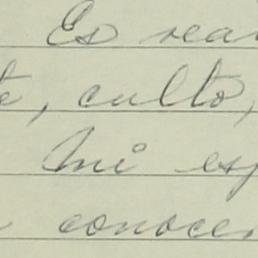 Es real
te, culto,
Mi esp
conocer